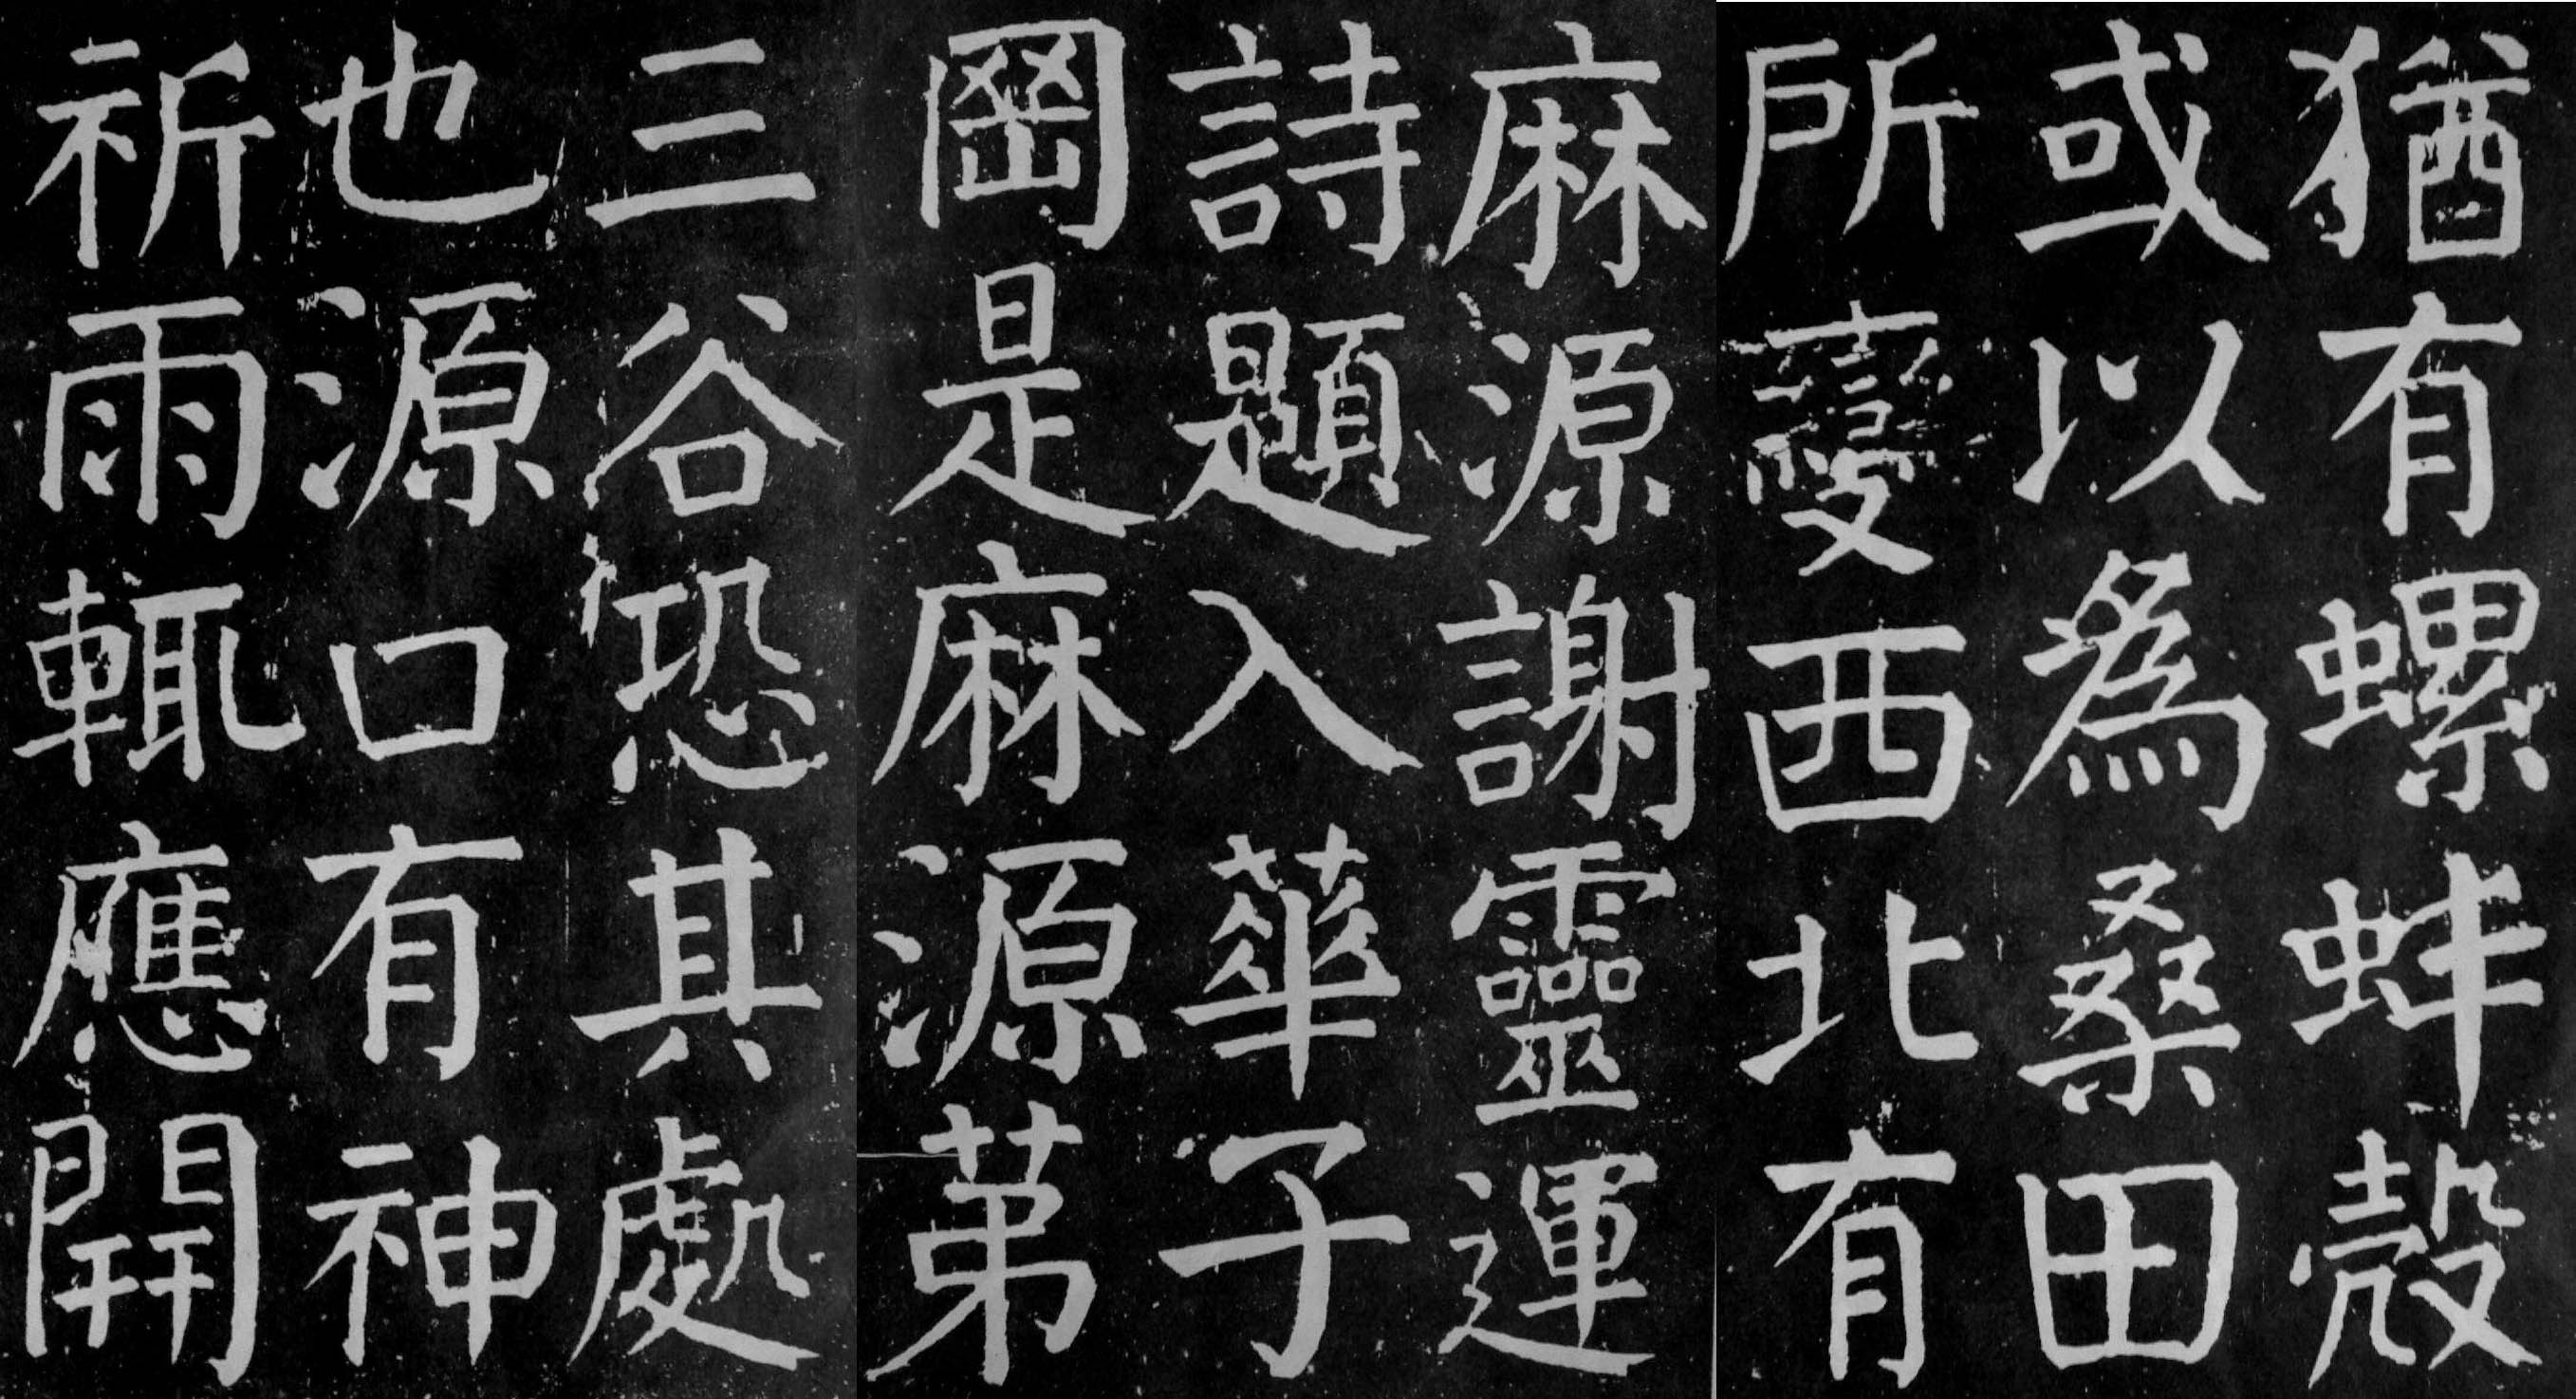 猶有螺蚌殼
或以為桑田
所變西北有
麻源謝靈運
詩題入華子
岡是麻源第
三谷恐其處
也源口有神
祈雨輒應開